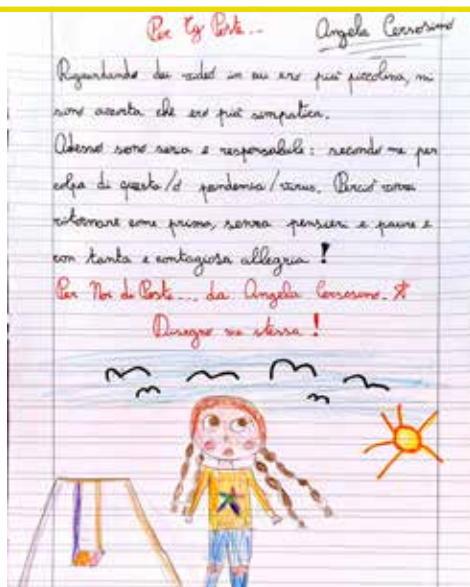 Per Tg Poste... Angela Cerrosimo
Riguardando dei video in cui ero più piccolina, mi
sono accorta che ero più simpatica.
Adesso sono seria e responsabile: secondo me per
colpa di questa/o pandemia/virus. Perciò vorrei
ritornare come prima, senza pensieri e paure e
con tanta e contagiosa allegria!
Per Noi di Poste... da Angela Cerrosimo.
Disegno me stessa!